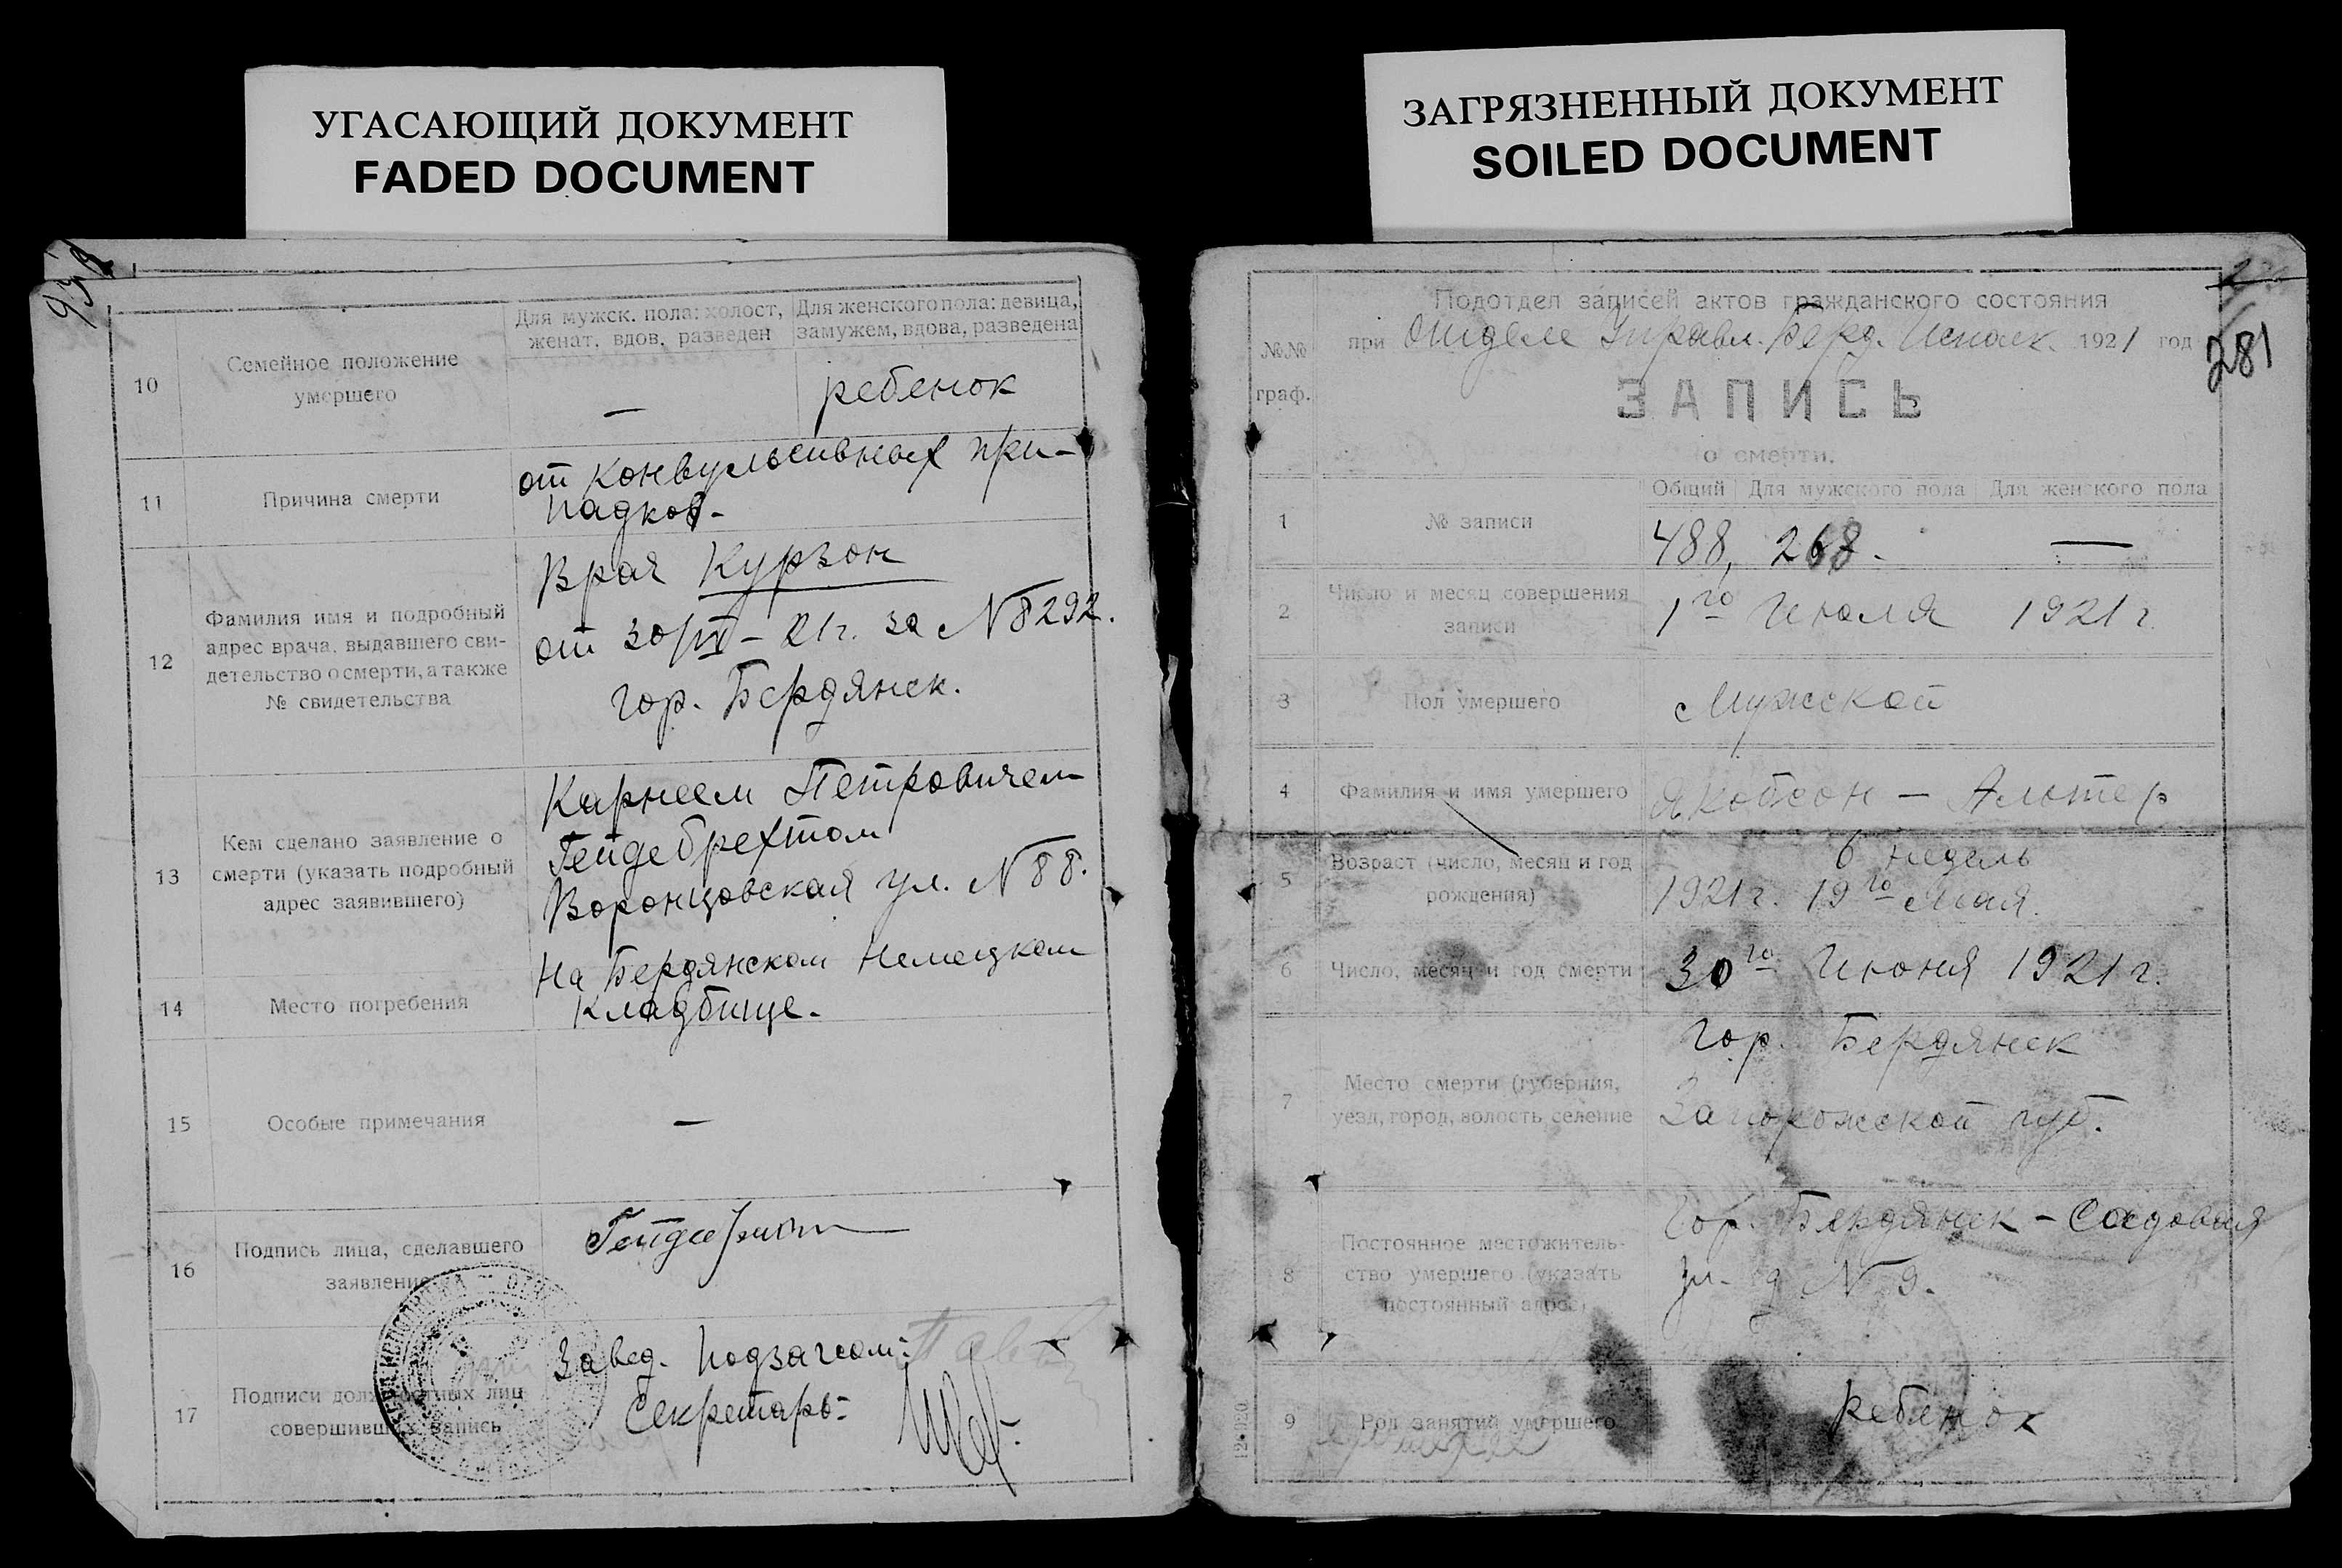 УГАСАЮЩИЙ ДОКУМЕНТ
FADED DOCUMENT
10
Семейное положение
умершего
Для мужск. пола: холост,
женат, вдов, разведен
Для женского пола: девица,
замужем, вдова, разведена
—
ребенок
11
Причина смерти
от конвульсивных при-
падков.
12
Фамилия имя и подробный
адрес врача, выдавшего сви-
детельство о смерти, а также
№ свидетельства
Врач Курзон
от 30/VI – 21 г. за N 8292.
гор. Бердянск.
13
Кем сделано заявление о
смерти (указать подробный
адрес заявившего)
Карнеем Петровичем
Гейдебрехтом
Воронцовская ул. N 88.
14
Место погребения
На Бердянском Немецком
кладбище.
15
Особые примечания
—
16
Подпись лица, сделавшего
заявление
17
Подписи должностных лиц
совершивших запись
Завед. Подзагсом:
Секретарь:
ЗАГРЯЗНЕННЫЙ ДОКУМЕНТ
SOILED DOCUMENT
281
№№
граф.
Подотдел записей актов гражданского состояния
при Отделе Управл. Берд. Исполк. 1921 год
ЗАПИСЬ
о смерти.
Общий Для мужского пола Для женского пола
1
№ записи
488, 268. —
2
Число и месяц совершения
записи
1го Июля 1921 г.
3
Пол умершего
Мужской
4
Фамилия и имя умершего
Якобсон — Альтер
5
Возраст (число, месяц и год
рождения)
6 недель
1921 г. 19го Мая.
6
Число, месяц и год смерти
30го Июня 1921 г.
7
Место смерти (губерния,
уезд, город, волость селение
Гор. Бердянск
Запорожской губ.
8
Постоянное местожитель-
ство умершего (указать
постоянный адрес)
Гор. Бердянск – Садовая
ул. д N 9.
9
Род занятий умершего
ребенок